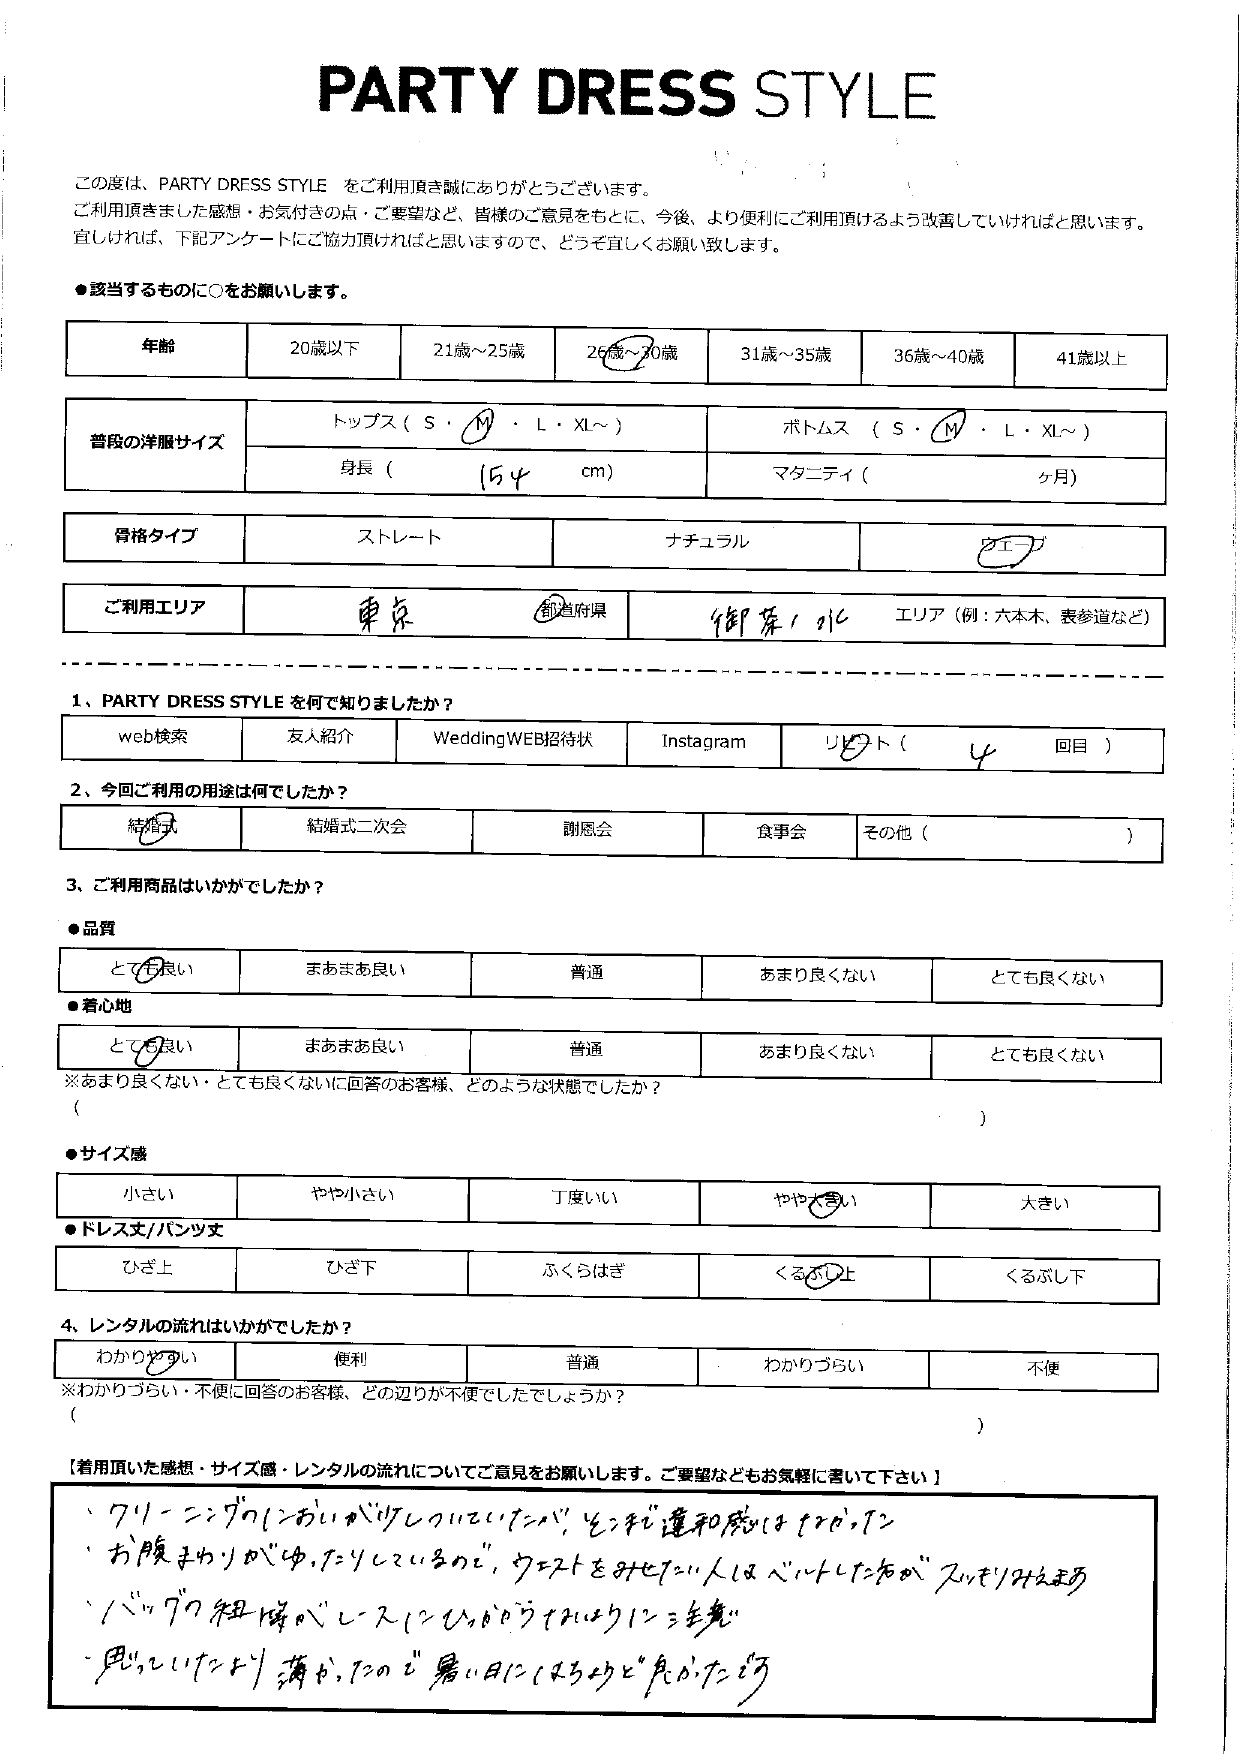 PARTY DRESS STYLE
この度は、PARTY DRESS STYLE をご利用頂き誠にありがとうございます。
ご利用頂きました感想・お気付きの点・ご要望など、皆様のご意見をもとに、今後、より便利にご利用頂けるよう改善していければと思います。
宜しければ、下記アンケートにご協力頂ければと思いますので、どうぞ宜しくお願い致します。
●該当するものに○をお願いします。
年齢 20歳以下 21歳～25歳 26歳～30歳 31歳～35歳 36歳～40歳 41歳以上
普段の洋服サイズ
トップス ( S ・ M ・ L ・ XL～ ) ボトムス ( S ・ M ・ L ・ XL～ )
身長 ( 154 cm) マタニティ ( ヶ月)
骨格タイプ ストレート ナチュラル ウェーブ
ご利用エリア 東京 都道府県 御茶ノ水 エリア（例：六本木、表参道など）
1、PARTY DRESS STYLE を何で知りましたか？
web検索 友人紹介 WeddingWEB招待状 Instagram リピート ( 4 回目 )
2、今回ご利用の用途は何でしたか？
結婚式 結婚式二次会 謝恩会 食事会 その他 ( )
3、ご利用商品はいかがでしたか？
●品質
とても良い まあまあ良い 普通 あまり良くない とても良くない
●着心地
とても良い まあまあ良い 普通 あまり良くない とても良くない
※あまり良くない・とても良くないに回答のお客様、どのような状態でしたか？
( )
●サイズ感
小さい やや小さい 丁度いい やや大きい 大きい
●ドレス丈/パンツ丈
ひざ上 ひざ下 ふくらはぎ くるぶし上 くるぶし下
4、レンタルの流れはいかがでしたか？
わかりやすい 便利 普通 わかりづらい 不便
※わかりづらい・不便に回答のお客様、どの辺りが不便でしたでしょうか？
( )
【着用頂いた感想・サイズ感・レンタルの流れについてご意見をお願いします。ご要望などもお気軽に書いて下さい 】
・クリーニングのにおいが少しついていたが、そこまで違和感はなかった
・お腹まわりがゆったりしているので、ウエストをみせたい人はベルトした方がスッキリみえます
・バッグの紐がレースにひっかからないように注意
・思っていたより薄かったので暑い日にはちょうど良かったです